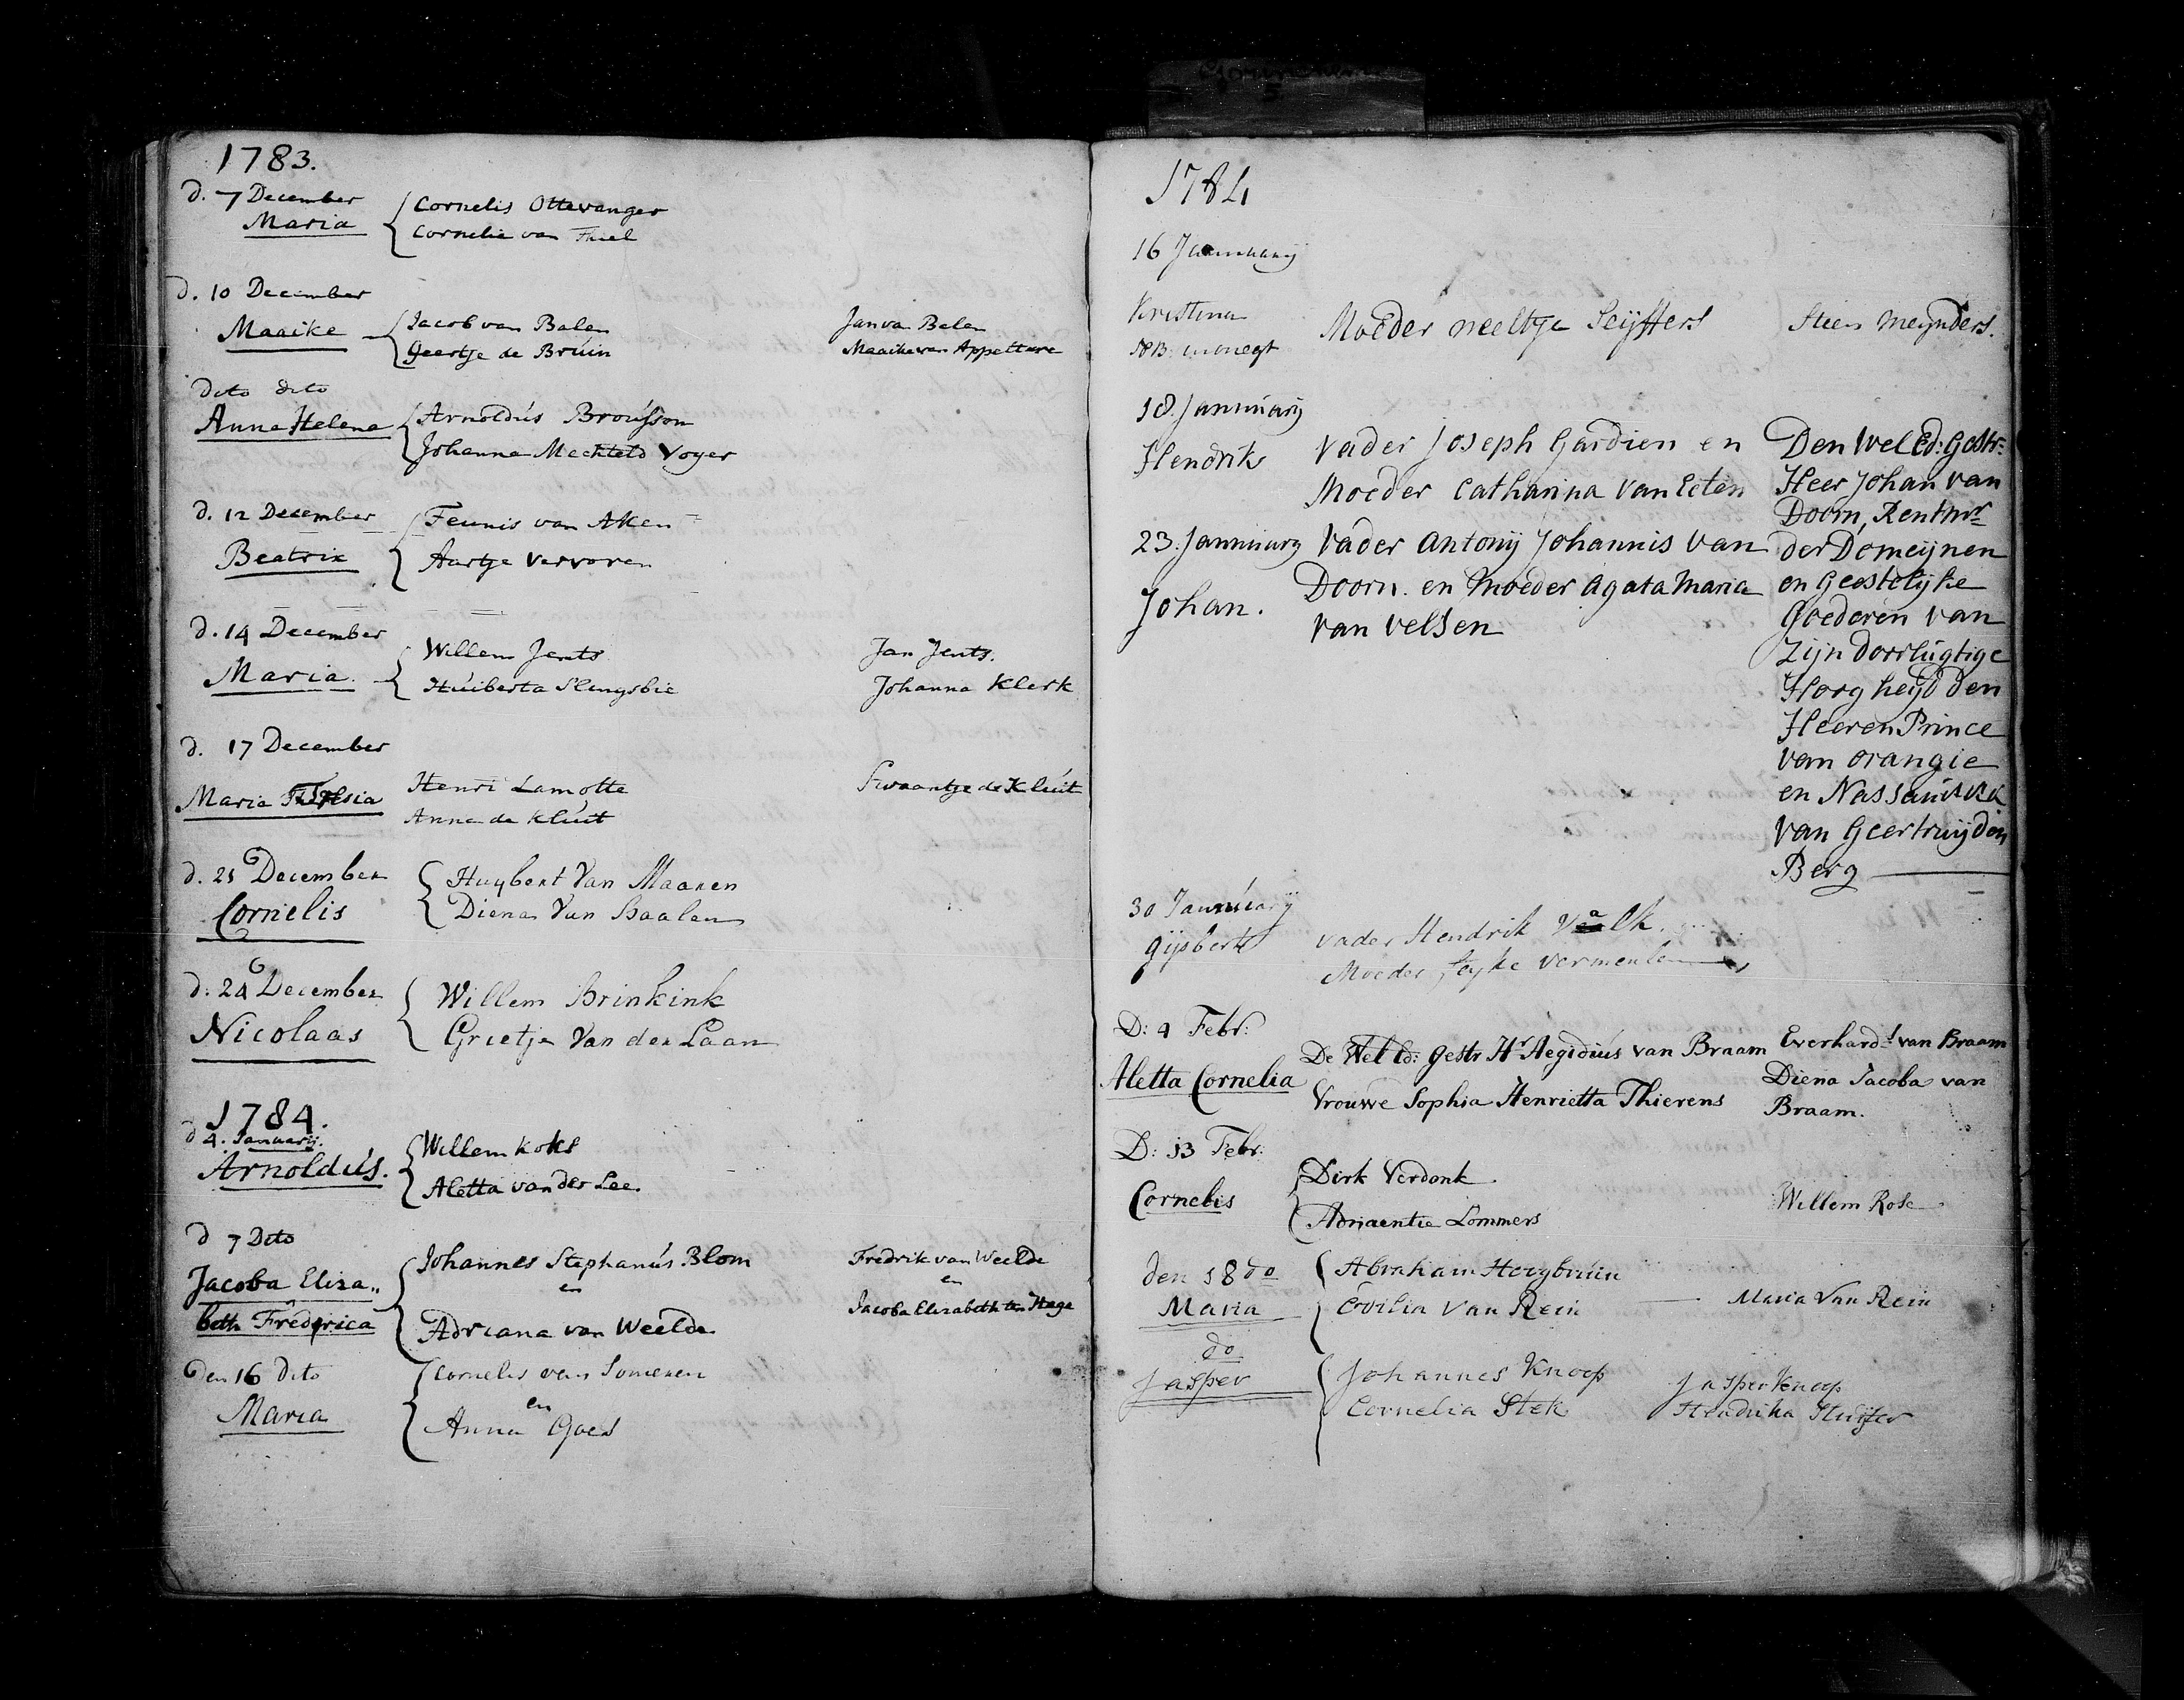 1783.
d. 7 December
Maria
Cornelis Ottevanger
Cornelia van Thiel
d. 10 December
Maaike
Jacob van Balen
Geertje de Bruin
Jan va Balen
Maaike van Appeltere
dito dito
Anna Helena
Arnoldús Broússon
Johanna Mechteld Voyer
d. 12 December
Beatrix
Teunis van Aken
Aartje Vervoren
d. 14 December
Maria.
Willem Jents
Huiberta Slingsbie
Jan Jents.
Johanna Klerk
d. 17 December
Maria Theresia
Henri Lamotte
Anna de Kluit
Swaantje de Kluit
d. 21 December
Cornelis
Huybert Van Maanen
Diena Van Haalen
d: 24 December
Nicolaas
Willem Brinkink
Grietje Van der Laan
1784.
d 4. Januarij.
Arnoldús.
Willem Koks
Aletta van der Lee.
d 7 Dito
Jacoba Eliza„
beth Frederica
Johannes Stephanús Blom
en
Adriana van Weelde
Fredrik van Weelde
en
Jacoba Elizabeth ten Hage
Den 16 dito
Maria
Cornelis van Someren
en
Anna Goes
1784
16 Januarij
Kristina
NB: in onegt
Moeder neeltje Seijffers
Steen Meijnders.
18. Januúarij
Hendrik
Vader Joseph Gardien en
Moeder Catharina Van Eeten
23. Januúary
Johan.
Vader Antonij Johannis Van
Doorn. en Moeder Agata Maria
Van Velsen
Den Wel Ed: Gestr:
Heer Johan van
Doorn, Rentmr
der Domeijnen
en Geestelijke
Goederen van
Zijn Dorrlúgtige
Hoogheijd den
Heeren Prince
van orangie
en Nassaú
Van Geertruijden
Berg
30 Januúarij
Gijsbert
vader Hendrik Valk.
Moeder Eijke Vermeulen
D: 4 Febr:
Aletta Cornelia
De Wel Ed: Gestr Hr Aegidiús van Braam
Vrouwe Sophia Henrietta Thierens
Everhard.t van Braam
Diena Jacoba van
Braam.
D: 13 Febr:
Cornelis
Dirk Verdonk.
Adriaentie Lommers
Willem Rose
den 18 do
Maria
Abraham Hoogbruin
Cvilia Van Rein
Maria Van Rein
do
Jasper
Johannes Knoop
Cornelia Stek
Jasper Knoop
Hendrika Sluijter